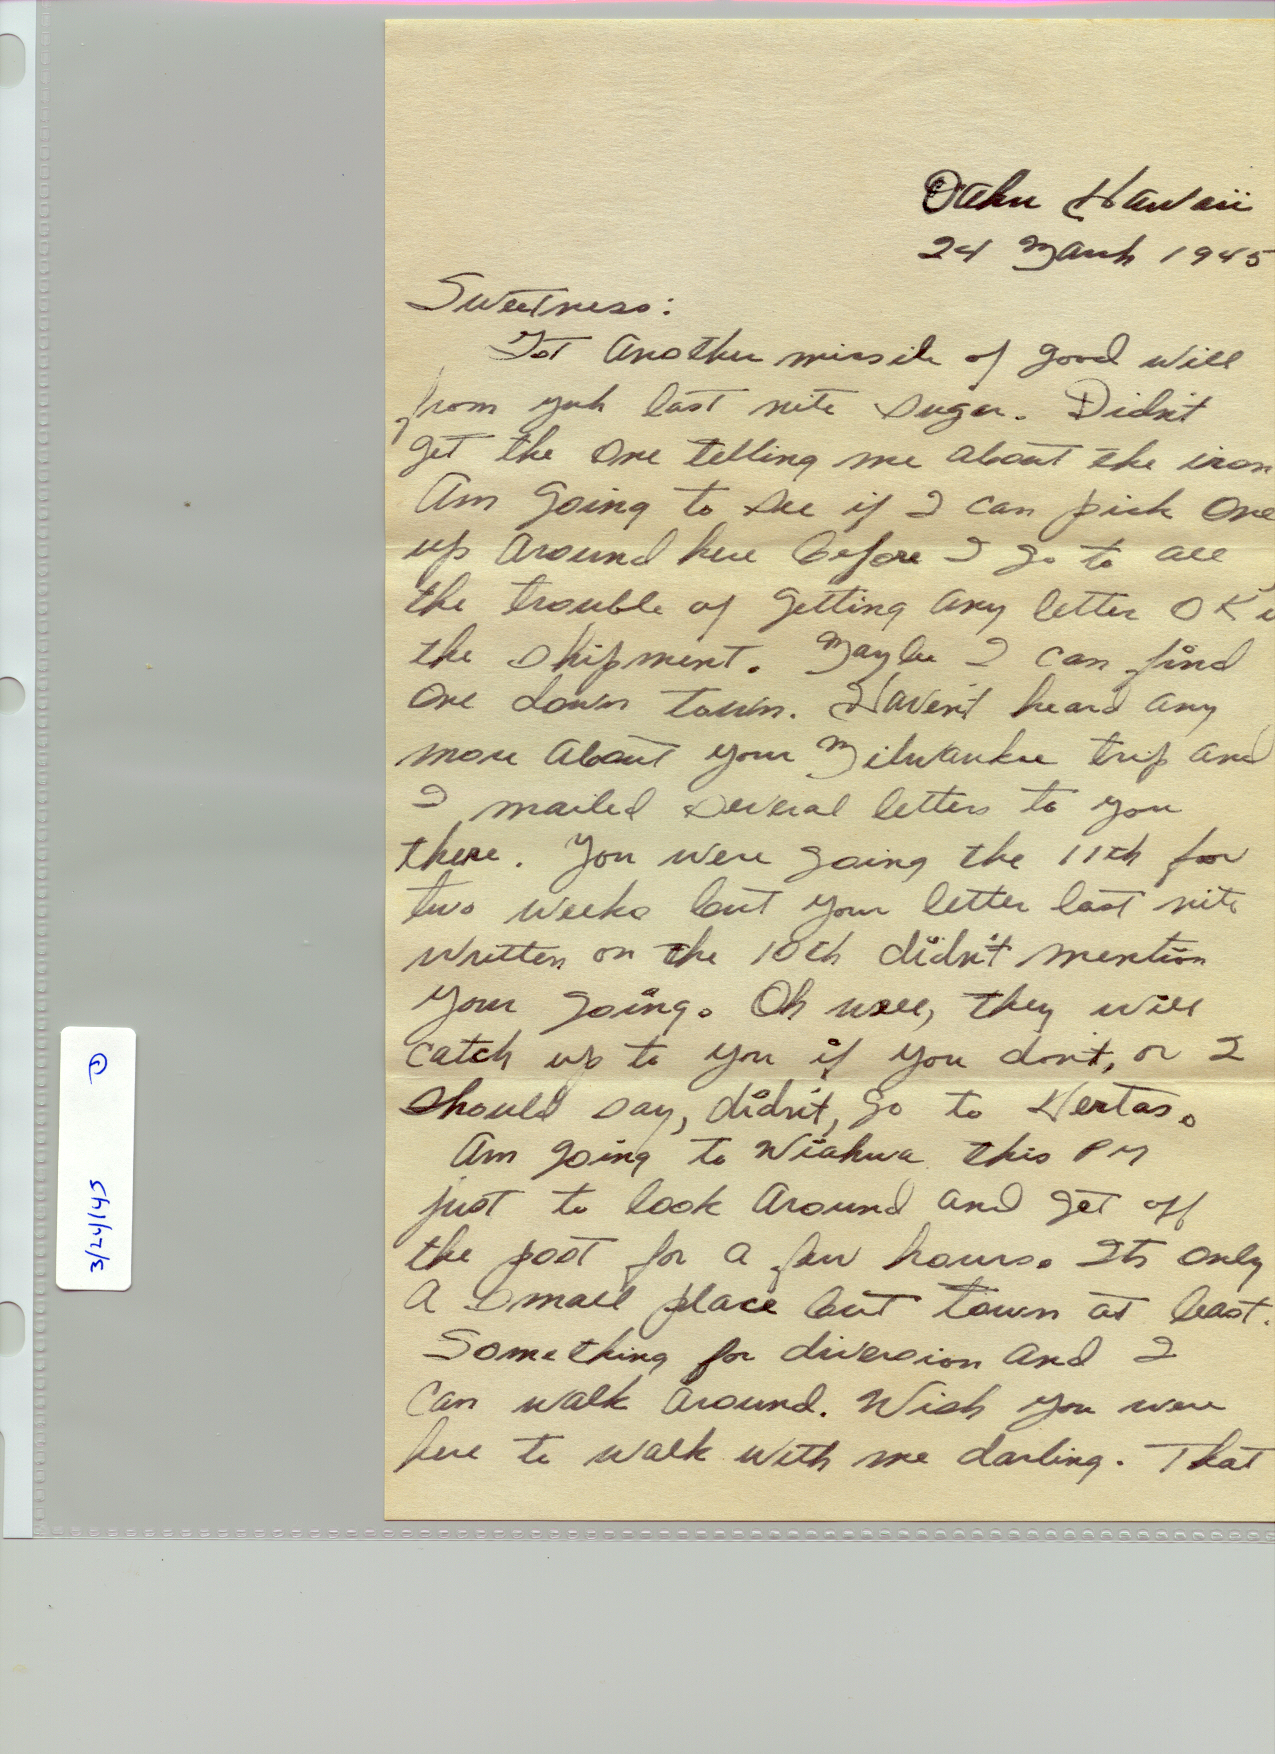 Oahu Hawaii
24 March 1945
Sweetness:
Got another missile of good will
from yuh last nite sugar. Didn't
get the one telling me about the iron
Am going to see if I can pick one
up around here before I go to all
the trouble of getting any letter OK'd
the shipment. Maybe I can find
one down town. Haven't heard any
more about your Milwaukee trip and
I mailed several letters to you
there. You were going the 11th for
two weeks but your letter last nite
written on the 10th didn't mention
your going. Oh well, they will
catch up to you if you don't, or I
should say, didn't, go to Hertas.
Am going to Wiahwa this PM
just to look around and get off
the post for a few hours. Its only
a small place but town at least.
Something for diversion and I
can walk around. Wish you were
here to walk with me darling. That
3/24/45 1